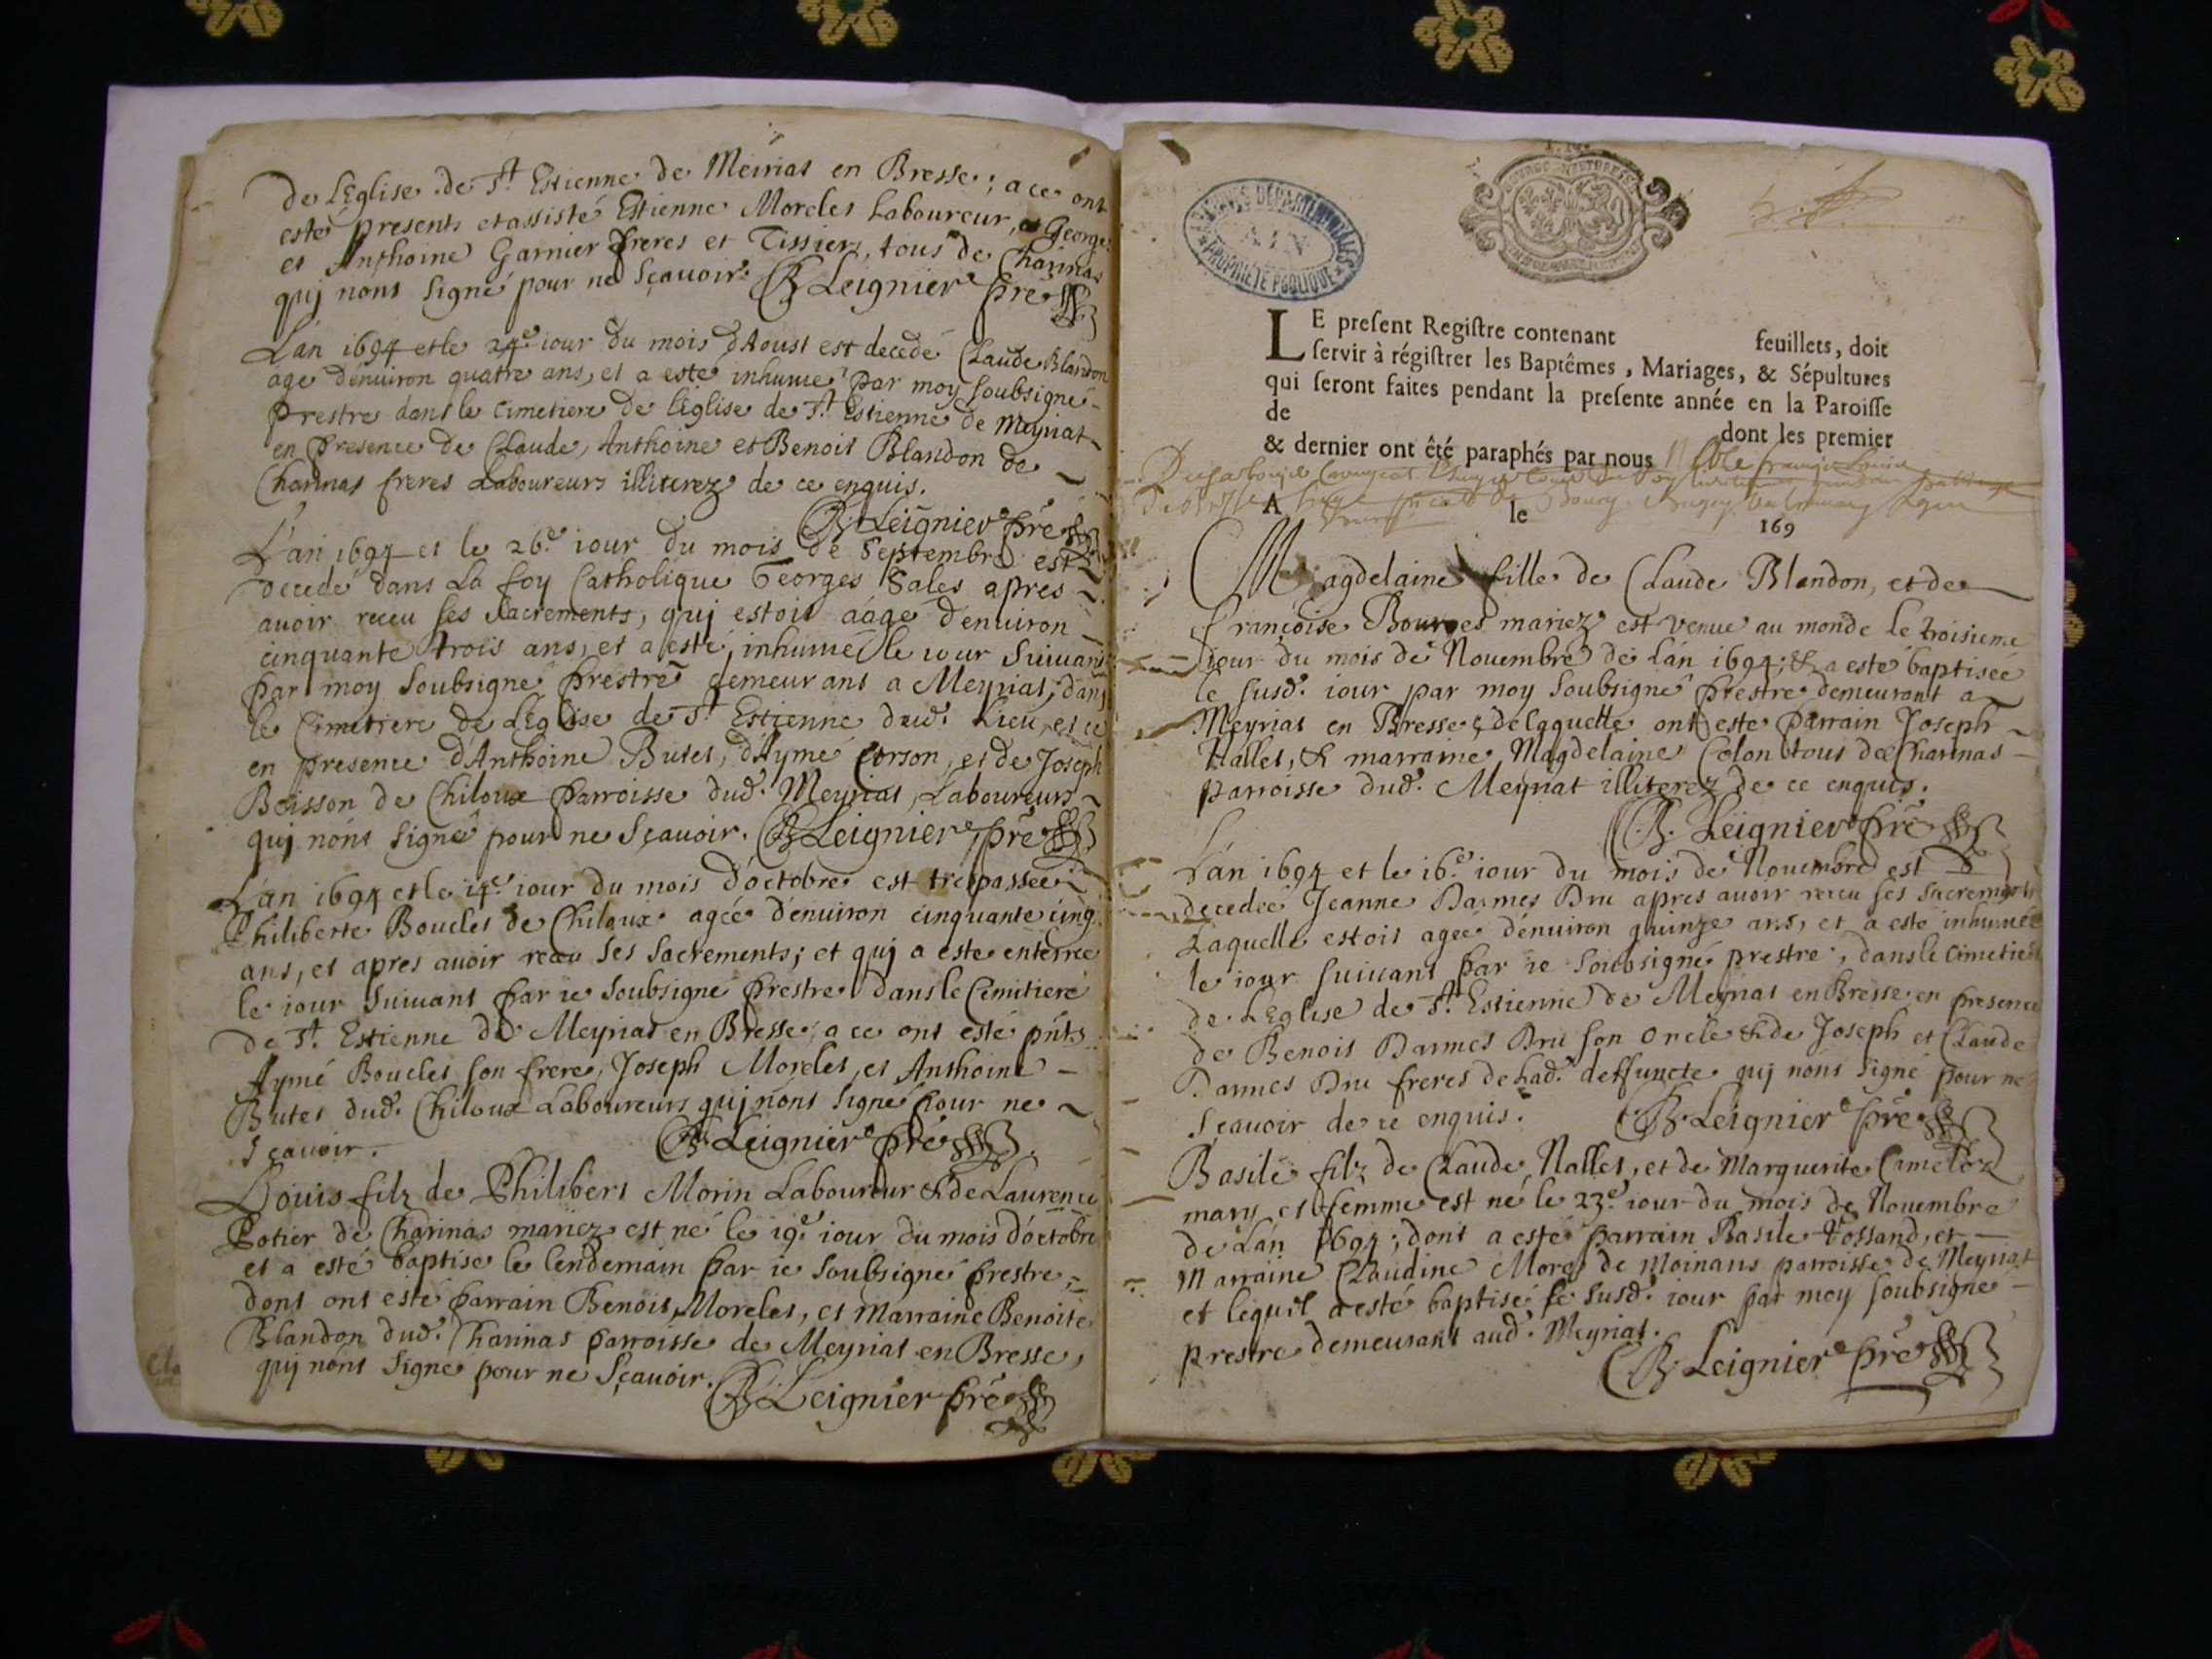 de LEglise de St Estienne de Meirias en Bresse; a ce ont
esté presents et assisté Estienne Morelet Laboureur, et George
et Anthoine Garnier freres et Tissiers, tous de Charinas
quj nont signé pour ne sçavoir. B Leignier pre
L'an 1694 et le 24e iour du mois d'Aoust est decedé Claude Blandon
age d'enuiron quatre ans, et a este inhumé par moy soubsigné
prestre dans le cimetiere de l'eglise de St Estienne de Meyriat
en presence de Claude, Anthoine et Benoit Blandon de
Charinas freres Laboureurs illiterez de ce enquis.
B. Leignier pre
L'an 1694 et le 26e iour du mois de Septembre est
decedé dans La foy Catholique Georges Sales apres
auoir receu ses sacrements, quj estoit aagé d'enuiron
cinquante trois ans, et a esté inhumé le iour suiuant
par moy soubsigné prestre demeurant a Meyriat, dans
le Cimetiere de LEglise de St Estienne dud. Lieu, et ce
en presence d'Anthoine Butet, d'Aymé Corson, et de Joseph
Boisson de Chiloux parroisse dud. Meyriat, Laboureurs
quj nont signé pour ne sçauoir. B Leignier pre
L'an 1694 et le 14e iour du mois d'octobre est trespassée
Philiberte Bouclet de Chiloux agée d'enuiron cinquante cinq
ans, et apres auoir receu ses sacrements; et quj a este enterrée
le iour suiuant par ie soubsigné prestre dans le Cimitiere
de St. Estienne de Meyriat en Bresse; a ce ont esté pnts
Aymé Bouclet son frere, Joseph Morelet, et Anthoine
Butet dud. Chiloux Laboureurs quj nont signé pour ne
sçauoir. B. Leignier pre
Louis filz de Philibert Morin Laboureur & de Laurence
Potier de Charinas mariez est né le 19e iour du mois d'octobre
et a esté baptisé le lendemain par ie soubsigné prestre,
dont ont esté parrain Benoit Morelet, et Marraine Benoite
Blandon dud. Charinas parroisse de Meyriat en Bresse,
quj nont signé pour ne sçauoir. B. Leignier pre
ARCHIVES DÉPARTEMENTALES
AIN
PROPRIÉTÉ PUBLIQUE
LE preſent Regiſtre contenant feuillets, doit
ſervir à régiſtrer les Baptêmes, Mariages, & Sépultures
qui ſeront faites pendant la preſente année en la Paroiſſe
de dont les premier
& dernier ont êté paraphés par nous
A le 169
Magdelaine fille de Claude Blandon, et de
françoise Bourges mariez est venue au monde le troisieme
iour du mois de Nouembre de L'an 1694; & a esté baptisée
le susd. iour par moy soubsigné prestre demeurant a
Meyriat en Bresse; de laquelle ont este parrain Joseph
Nallet, & marraine Magdelaine Colon tous de Charinas
parroisse dud. Meyriat illiterez de ce enquis.
B. Leignier pre
L'an 1694 et le 16e iour du mois de Nouembre est
decedée Jeanne Darmes Dru apres auoir receu ses sacrements
Laquelle estoit agée d'enuiron quinze ans, et a esté inhumée
le iour suiuant par ie soubsigné prestre, dans le cimetiere
de LEglise de St. Estienne de Meyriat en Bresse en presence
de Benoit Darmes Dru son oncle & de Joseph et Claude
Darmes Dru freres de Lad. deffuncte quj nont signé pour ne
sçauoir de ce enquis. B. Leignier pre
Basile filz de Claude Nallet, et de Marguerite
mary et femme est né le 23e iour du mois de Nouembre
de L'an 1694; dont a esté parrain Basile Vossand, et
Marraine Claudine Morel de Moinans parroisse de Meyriat
et lequel a esté baptisé le susd. iour par moy soubsigné
prestre demeurant aud. Meyriat.
B. Leignier pre